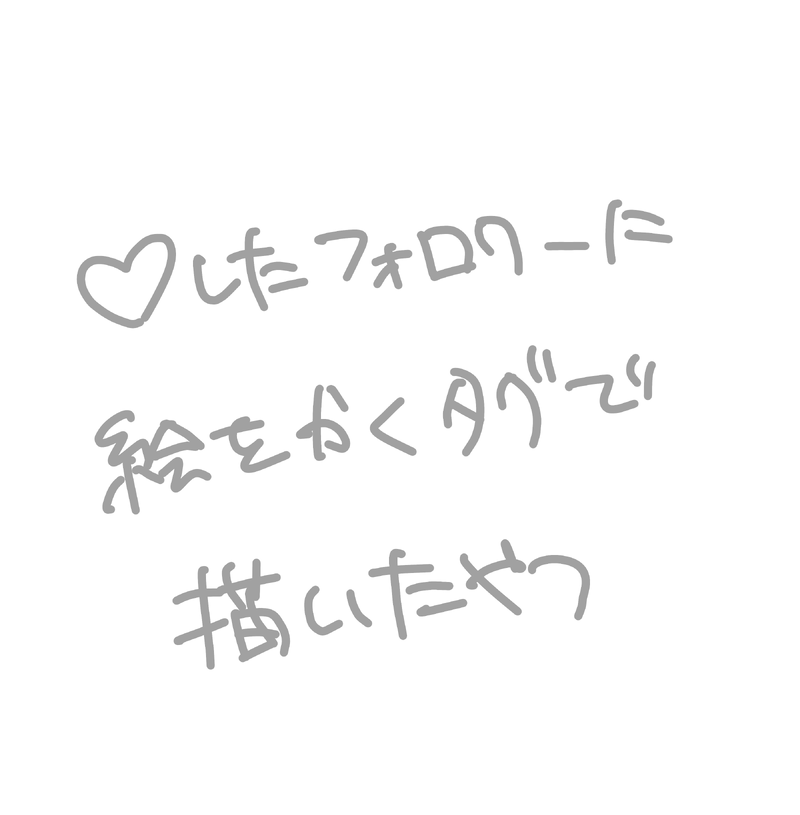 ♡したフォロワーに
絵をかくタグで
描いたやつ